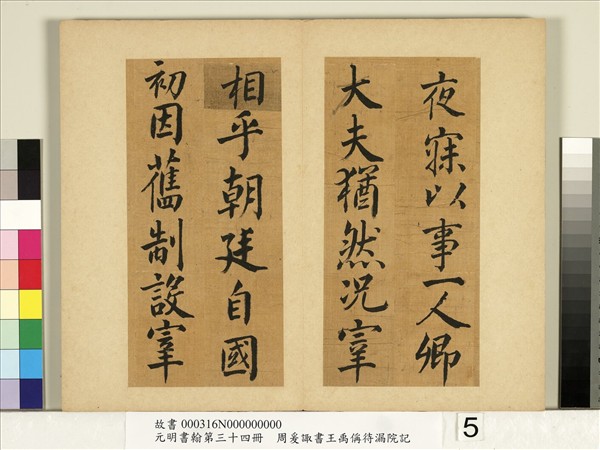 夜寐以事一人卿
大夫猶然況宰
相乎朝廷自國
初因舊制設宰
故書 000316N000000000
元明書翰第三十四冊 周爰諏書王禹偁待漏院記
5